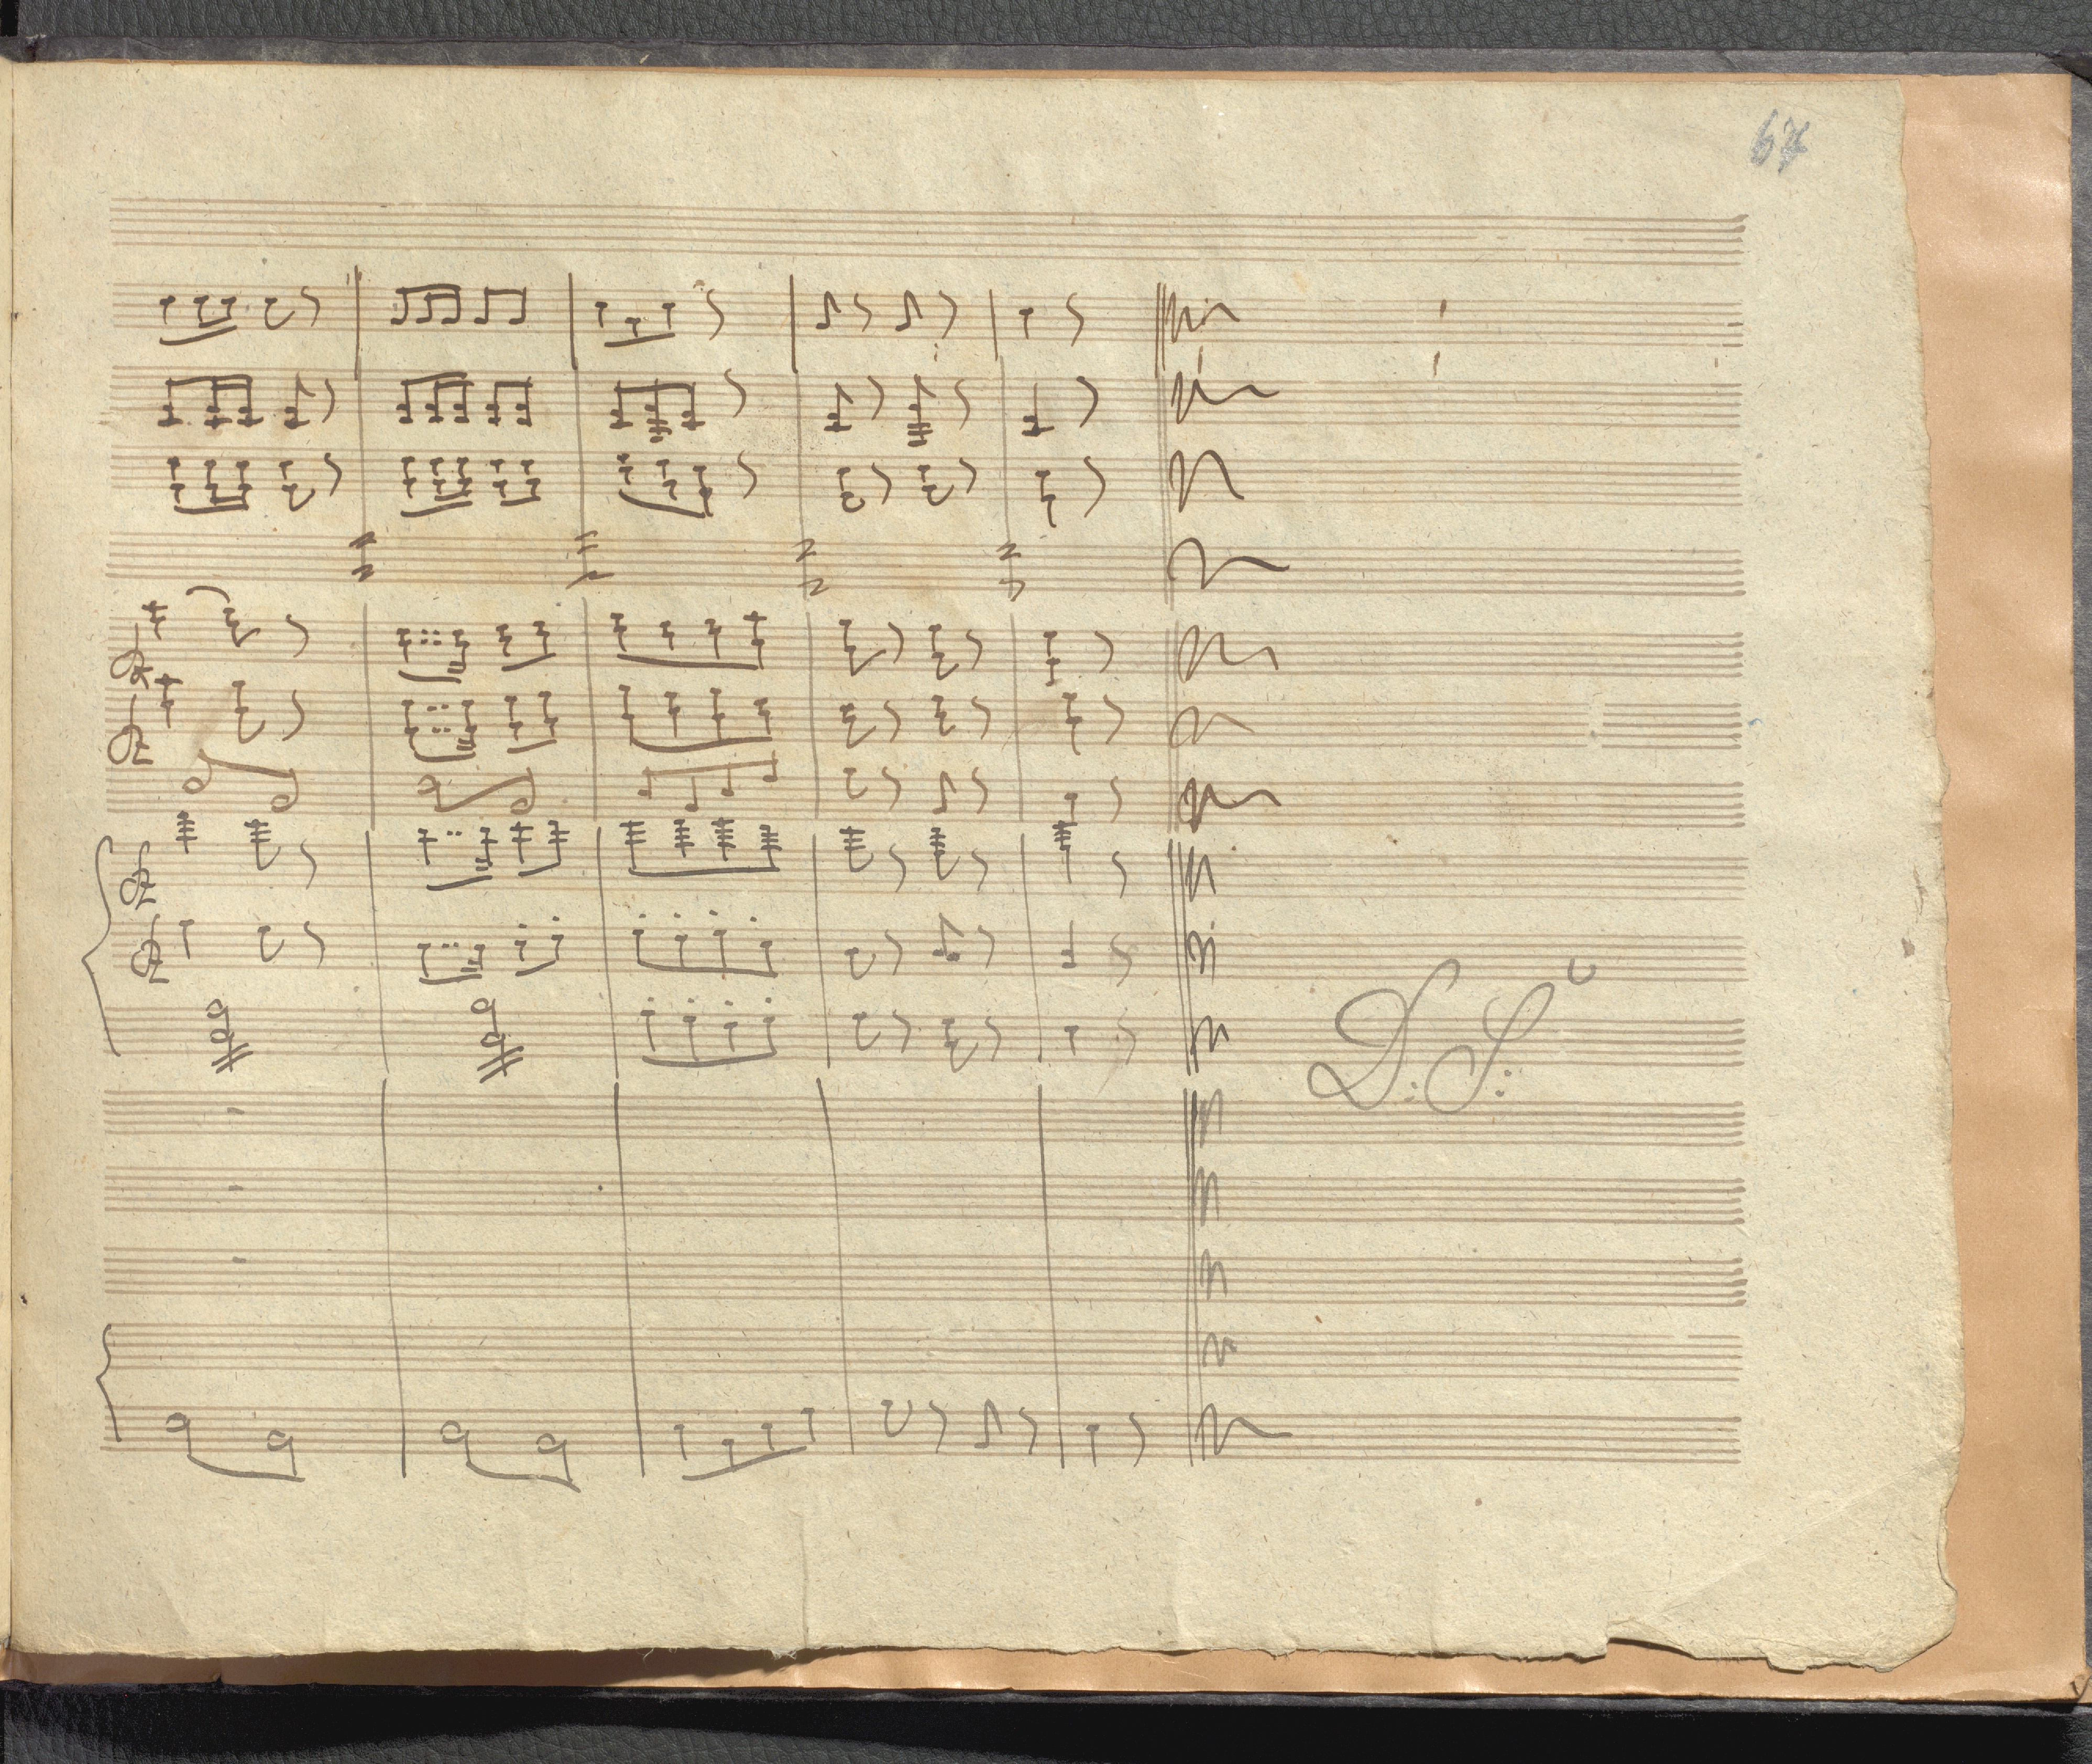 67
D: S: